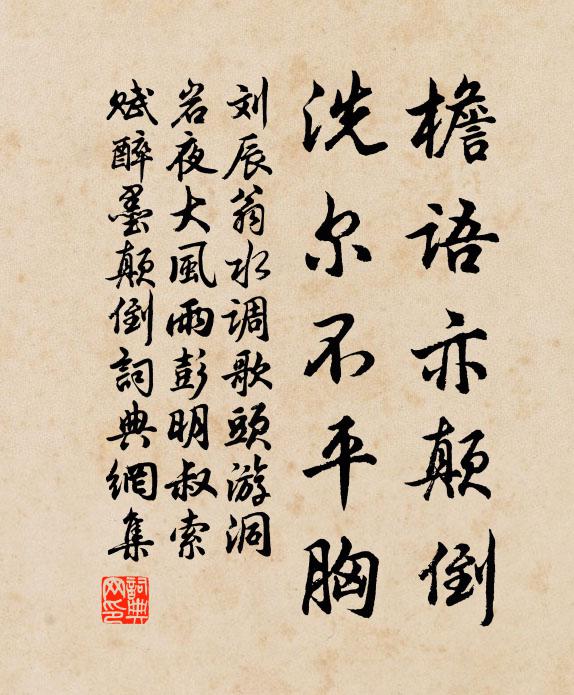 檐语亦颠倒
洗尔不平胸
刘辰翁水调歌头游洞
岩夜大風雨彭明叔索
赋醉墨颠倒詞典網集
詞典
网印